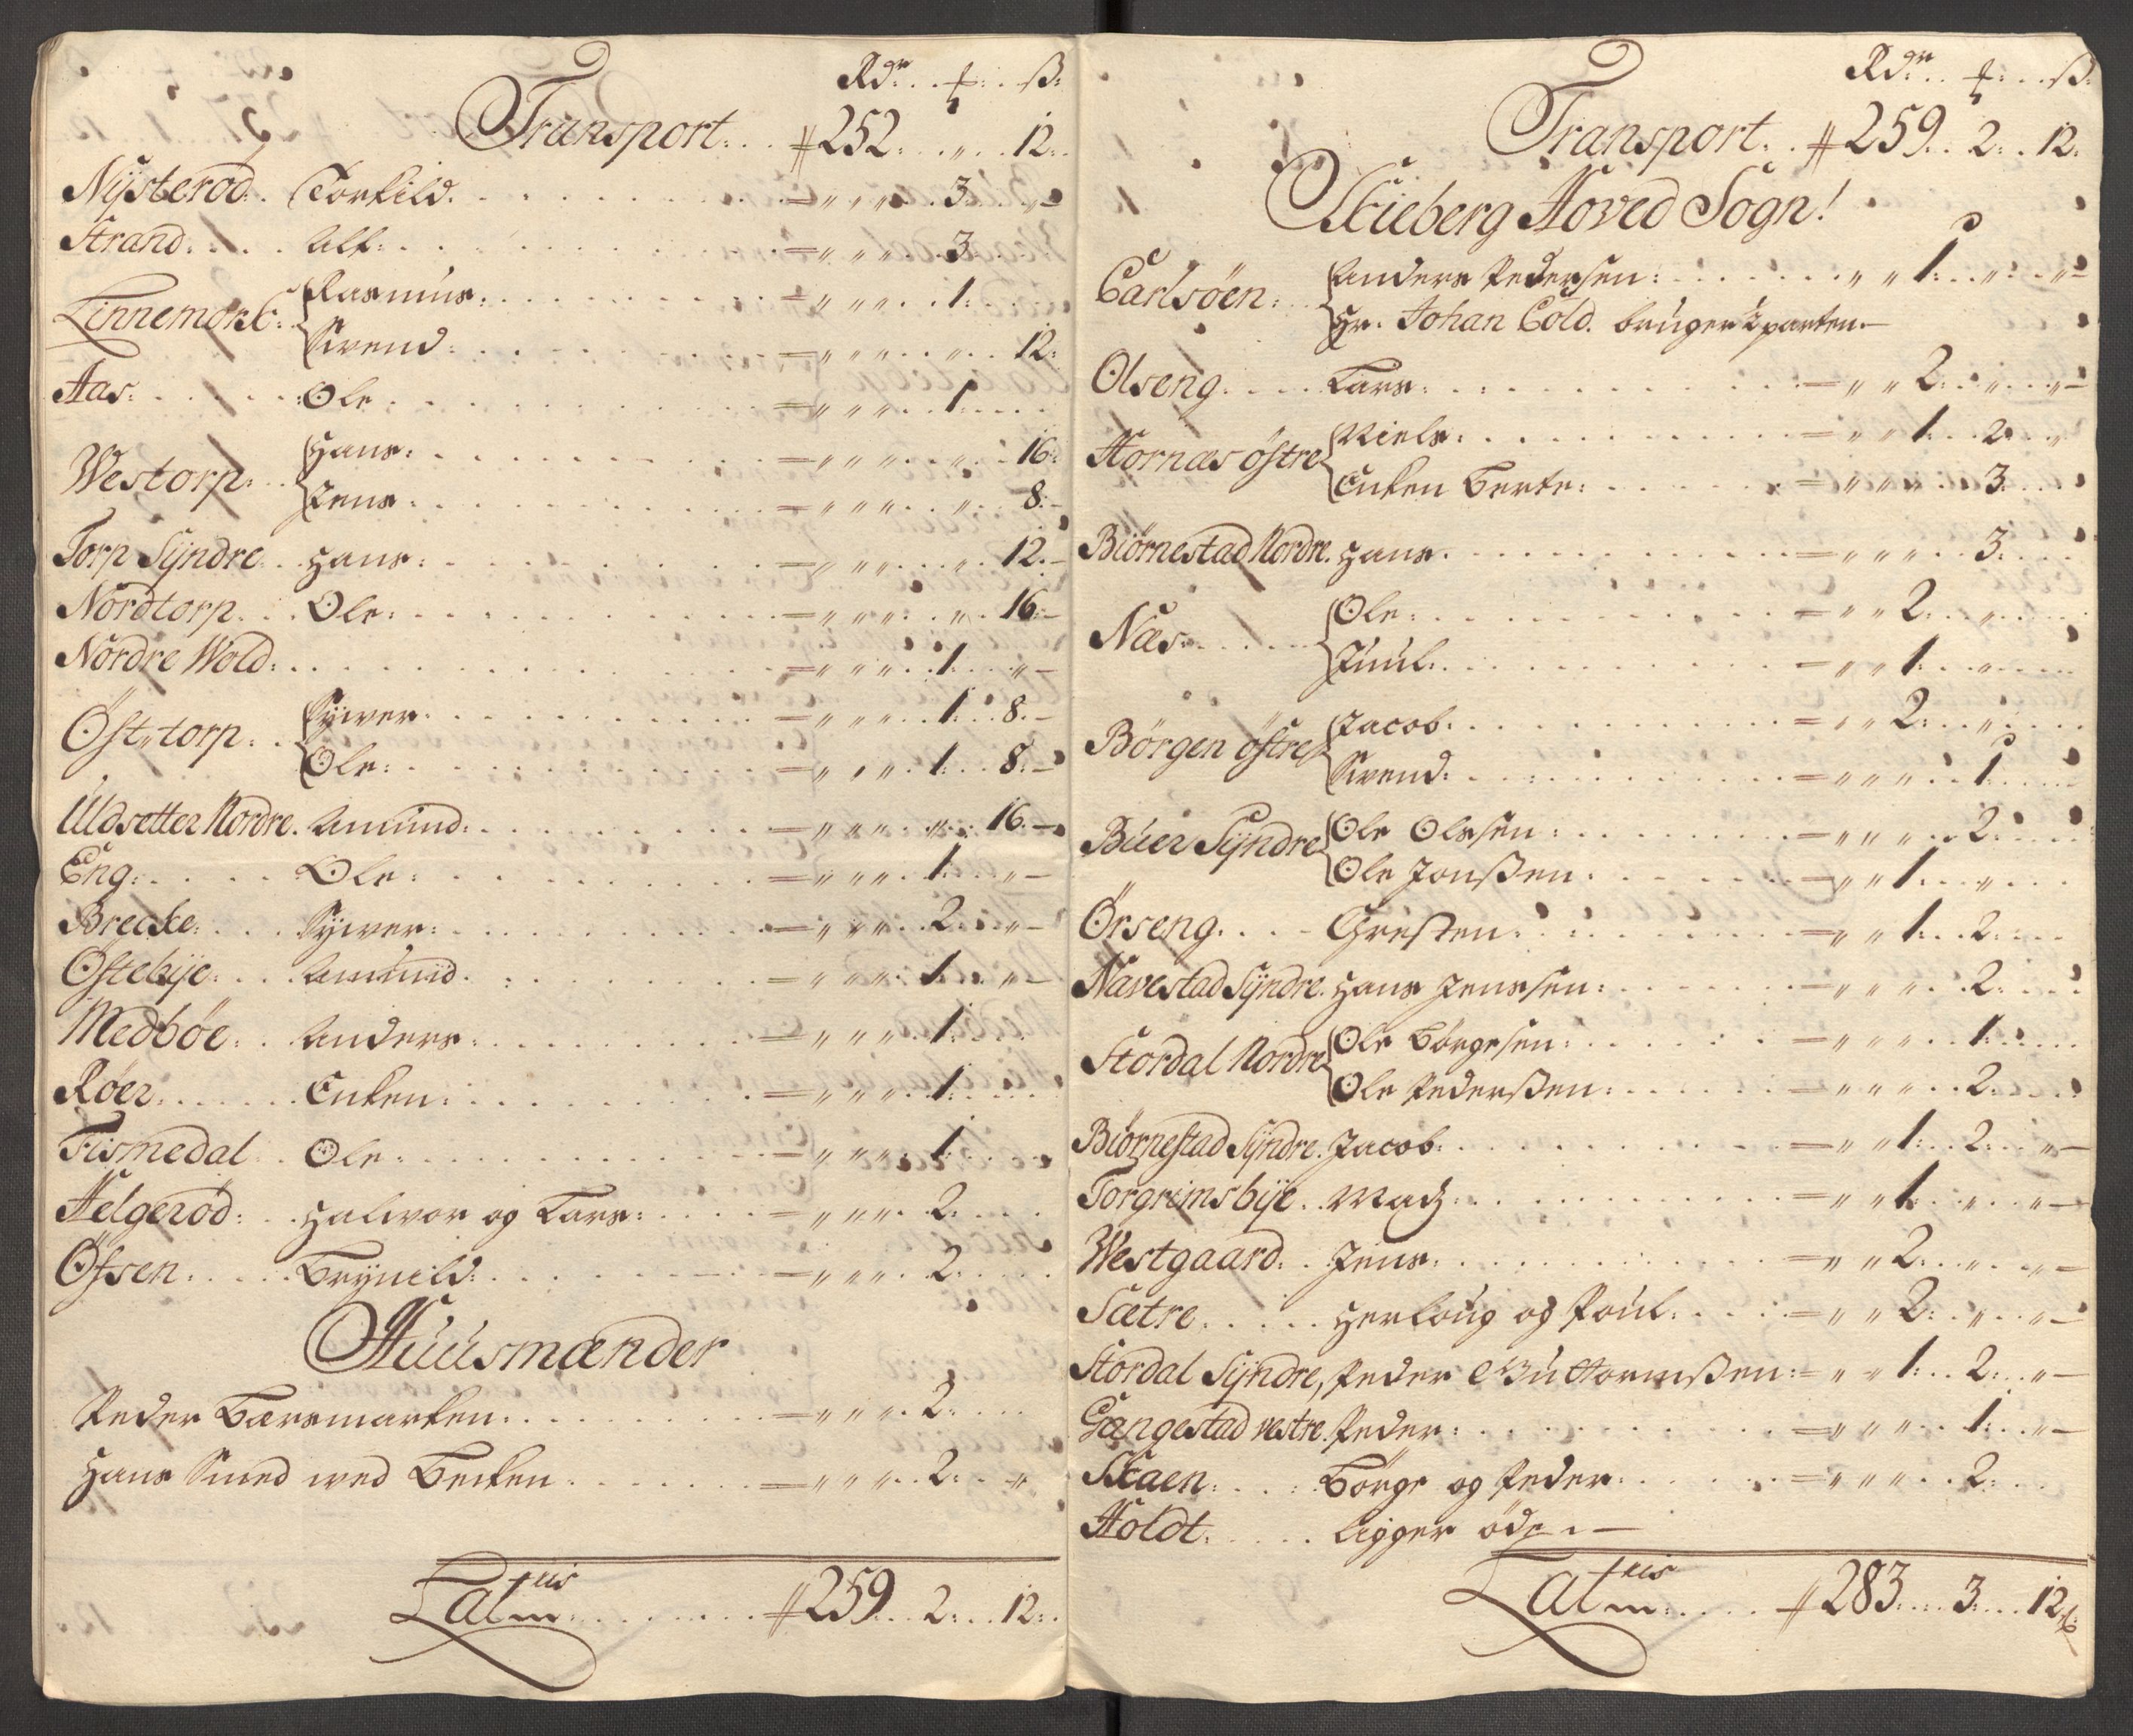 Rdr. . ƒ: . ß:
Transport. . # 252. . „ . . 12. .
Nÿsterød. . Torkild. . . . = „ „ „ . 3. . „ -
Strand. . . . Alf. . . . = „ „ „ . 3. . .
Linnemark: { Rasmus. . . . = „ „ „ . . 1. . .
Svend: . . . = „ „ „ . . „ . . 12:
Aas. . . . Ole . . . . = „ „ „ . . 1. . . .
Westorp. . { Hans. . . . = „ „ „ . . „ . . 16.
Jens. . . . = „ „ „ . . „ . . 8. -
Torp Sÿndre. . Hans. . . . = „ „ „ . . „ . . 12. -
Nordtorp. . . Ole. . . . = „ „ „ . . „ . . 16. -
Nordre Wold. . . . = „ „ „ . . 1. . „ -
Öst„torp. . { Sÿver. . . . = „ „ „ . . 1. . 8. -
Ole. . . . = „ „ „ . . 1. . 8. -
Uldsetter Nordre. Amund. . . . = „ „ „ . . „ . . 16. -
Eng. . . . Ole. . . . = „ „ „ . . 1. . „ -
Brecke. . . Sÿver. . . . = „ „ „ . . 2. . „ -
Östebÿe. . . Amund. . . . = „ „ „ . . 1. . „ -
Medböe. . Anders. . . . = „ „ „ . . 1. . .
Röer. . . . Enken. . . . = „ „ „ . . 1. . . .
Tismedal. . Ole. . . . = „ „ „ . . 1. . . .
Helgerød. . . Halvor og Lars. . . . = „ „ „ . . 2. . . .
Öfsen. . . . Brÿnild. . . . = „ „ „ . . 2. . . .
Huusmænder
Peder Bærsmarken. . . . = „ „ „ . . 2. . . .
Hans Smed ved Becken. . . . = „ „ „ . . 2. . „
Latm us. . . . # 259. . 2. . 12. .
Rdr. . ƒ: . . ß:
Transport. . # 259. . 2. . 12.
Skieberg Hoved Sogn!
Carlsöen. . { Anders Pedersen. . . . „ „ 1. . „ . . „ -
Hr. Johan Cold. bruger ½ parten. -
Olseng. . . . Lars. . . . = „ „ 2. . „ . . „ -
Hornæs östre { Niels. . . . = „ „ 1. . 2. . „
Enken Berte. . . . = „ „ „ . . 3. . .
Biörnestad Nordre. Hans. . . . = „ „ „ . . 3. . . .
Næs. . . . { Ole. . . . = „ „ 2. . „ . . .
Juul. . . . = „ „ 1. . „ . . .
Börgen östre { Jacob. . . . = „ „ 2. . „ . . .
Svend. . . . = „ „ „ . . 1. . . .
Buer Sÿndre { Ole Olssen. . . . = „ „ „ . . 2. . . .
Ole Jonßen. . . . = „ „ 1. . „ . . .
Örseng. . . . Christen. . . . = „ „ 1. . 2. . . .
Navestad Sÿndre. Hans Jenssen. . . . = „ „ „ . . 2. . . .
Stordal Nordre { Ole Börgesen. . . . = „ „ „ . . 1. . . .
Ole Pederßen. . . . = „ „ „ . . 2. . . .
Biörnestad Sÿndre. Jacob. . . . = „ „ 1. . 2. . „ -
Torgrimsbÿe. . Madz. . . . = „ „ 1. . „ . . „ -
Westgaard. . Jens. . . . = „ „ 2. . „ . . „ -
Sætre. . . . Herloug og Poul. . . . = „ „ 2. . „ . . „ -
Stordal Sÿndre, Peder Guttormßen. = „ „ 1. . 2. . „ -
Gangestad vestre. Peder. . . . = „ „ „ . . 1. . „ -
Skaen. . . . Börge og Peder. . . . = „ „ „ . . 2. . .
Holdt. . . . ligger öde. -
Latm us. . . . # 283. . . 3. . . 12.